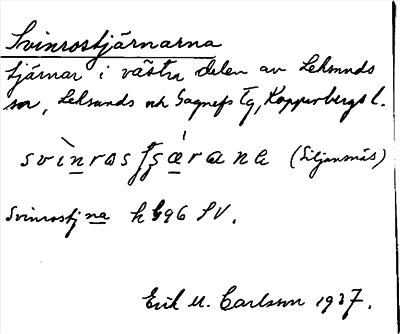 Svinrostjärnarna
tjärnar i västra delen av Leksands
sn, Leksands och Gagnefs tg, Kopparbergs l.
svìnrosʃɟǽrana (Siljansnäs)
Svinrostjna h 96 SV.
Erik M. Carlsson 1937.